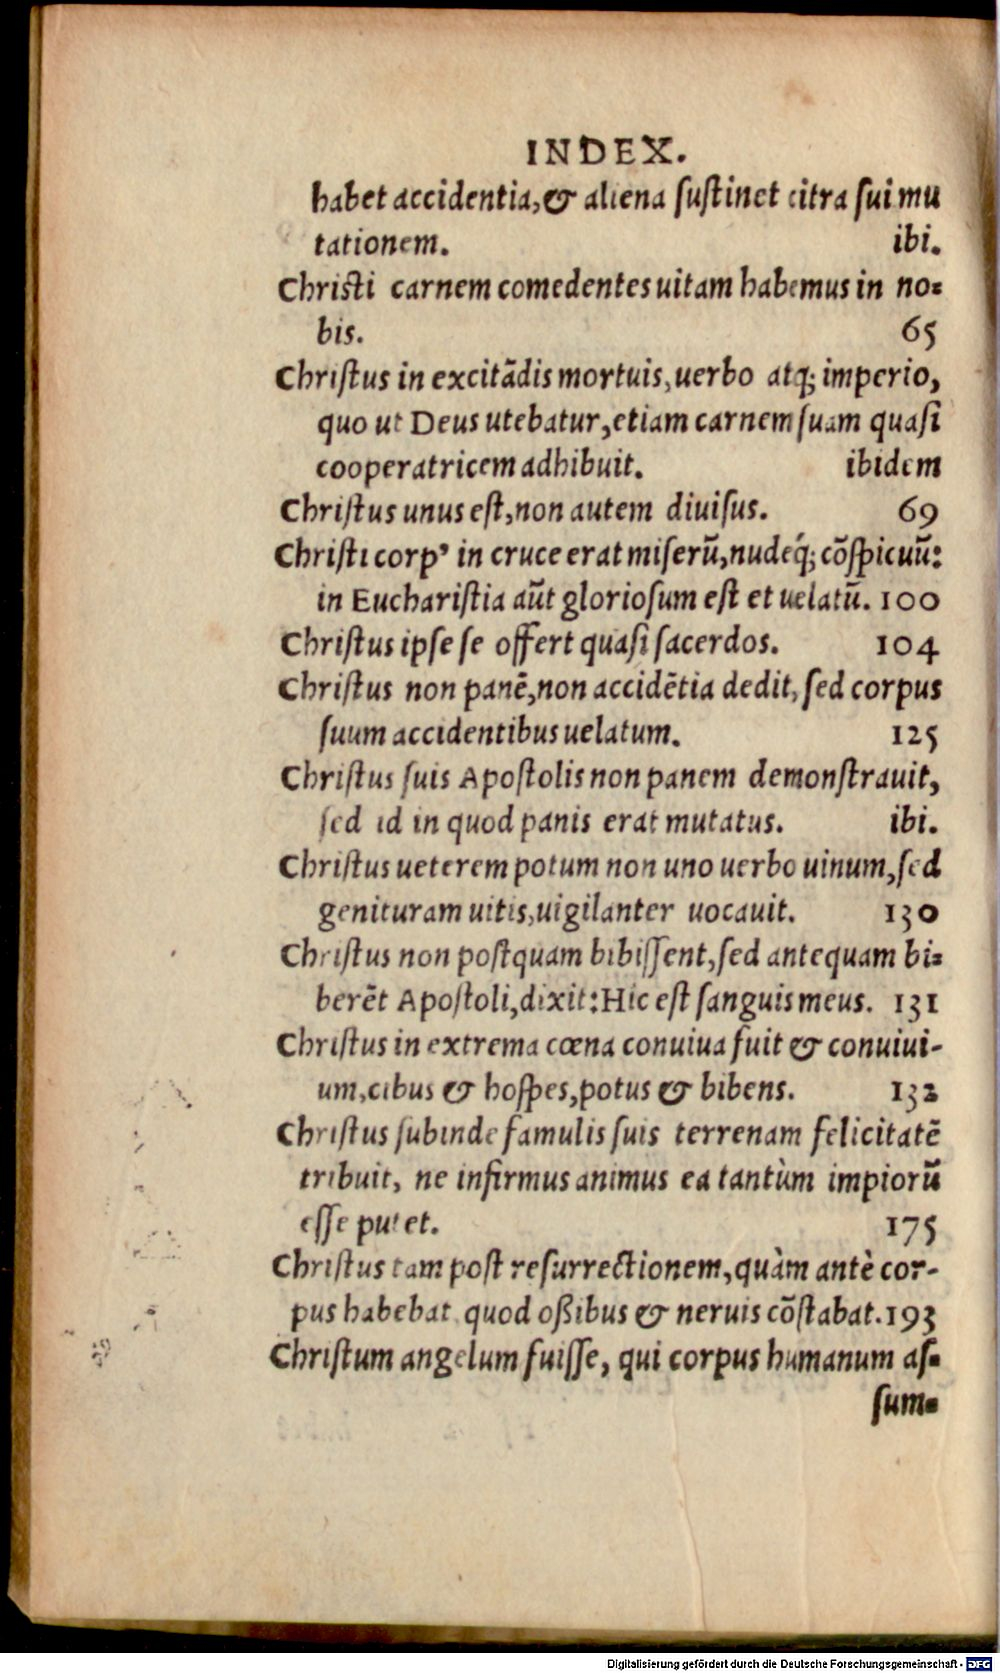 INDEX.
habet accidentia, & aliena ſuſtinet citra ſui mu
tationem. ibi.
Chriſti carnem comedentes uitam habemus in no-
bis. 65
Chriſtus in excitãdis mortuis, uerbo atq; imperio,
quo ut Deus utebatur, etiam carnem ſuam quaſi
cooperatricem adhibuit. ibidem
Chriſtus unus eſt, non autem diuiſus. 69
Chriſti corpꝰ in cruce erat miſerũ, nudeq́; cõſpicuũ:
in Euchariſtia aũt glorioſum eſt et uelatũ. 100
Chriſtus ipſe ſe offert quaſi ſacerdos. 104
Chriſtus non panẽ, non accidẽtia dedit, ſed corpus
ſuum accidentibus uelatum. 125
Chriſtus ſuis Apoſtolis non panem demonſtrauit,
ſed id in quod panis erat mutatus. ibi.
Chriſtus ueterem potum non uno uerbo uinum, ſed
genituram uitis, uigilanter uocauit. 130
Chriſtus non poſtquam bibiſſent, ſed antequam bi-
berẽt Apoſtoli, dixit: Hic eſt ſanguis meus. 131
Chriſtus in extrema cœna conuiua fuit & conuiui-
um, cibus & hoſpes, potus & bibens. 132
Chriſtus ſubinde famulis ſuis terrenam felicitatẽ
tribuit, ne infirmus animus ea tantùm impiorũ
eſſe putet. 175
Chriſtus tam poſt reſurrectionem, quàm antè cor-
pus habebat quod oßibus & neruis cõſtabat. 193
Chriſtum angelum fuiſſe, qui corpus humanum aſ-
ſum-
Digitalisierung gefördert durch die Deutsche Forschungsgemeinschaft - DFG